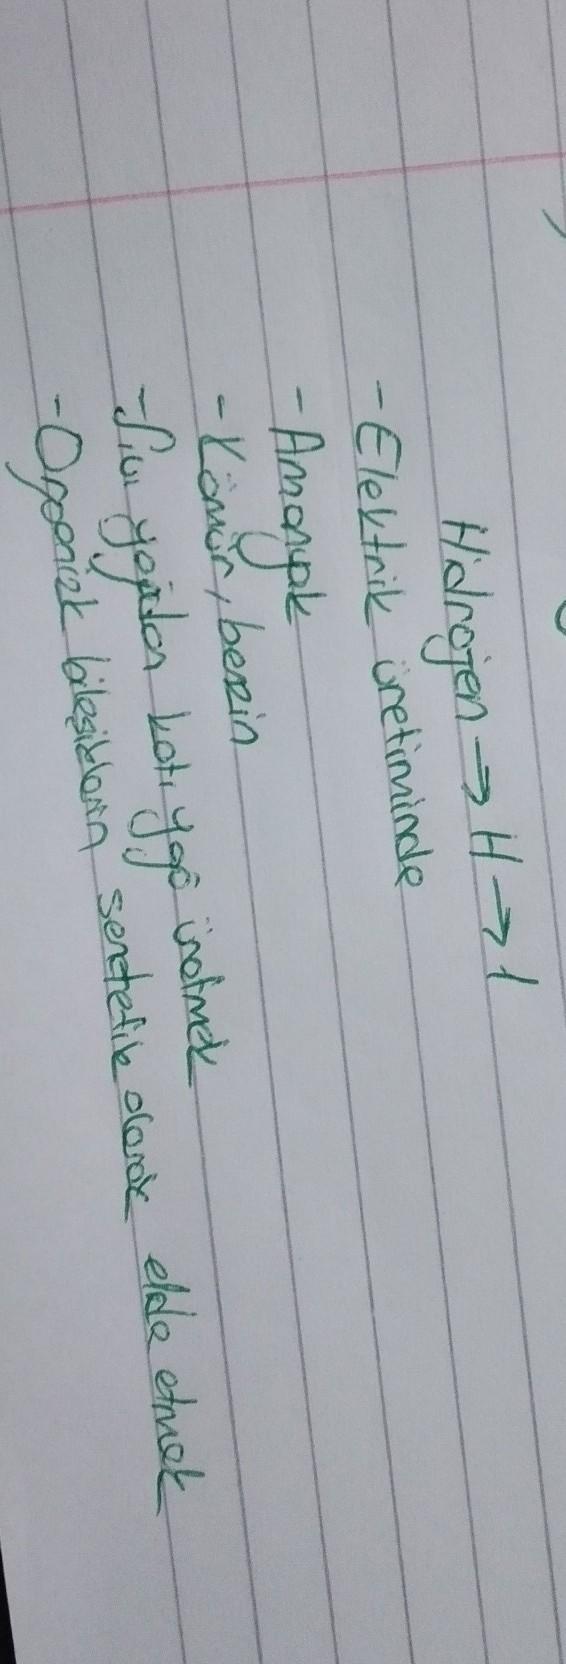 Hidrojen → H → 1
- Elektrik üretiminde
- Amonyak
- Kömür, benzin
- Sıvı yağdan katı yağ üretmek
- Organik bileşiklerin sentetik olarak elde etmek